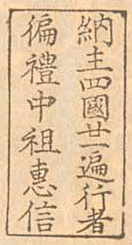 納主四國廿一遍行者
偏禮中祖惠信